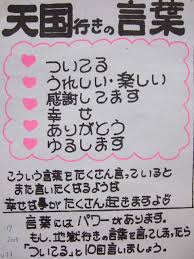 天国行きの言葉
ついてる
うれしい・楽しい
感謝してます
幸せ
ありがとう
ゆるします
こういう言葉をたくさん言っていると
また言いたくなるような
幸せな事がたくさん起きますよ
言葉にはパワーがあります。
もし、地獄行きの言葉を言ってしまったら
「ついてる」と10回言いましょう。